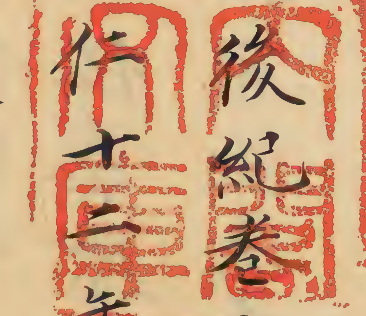 後紀巻
仁十二年